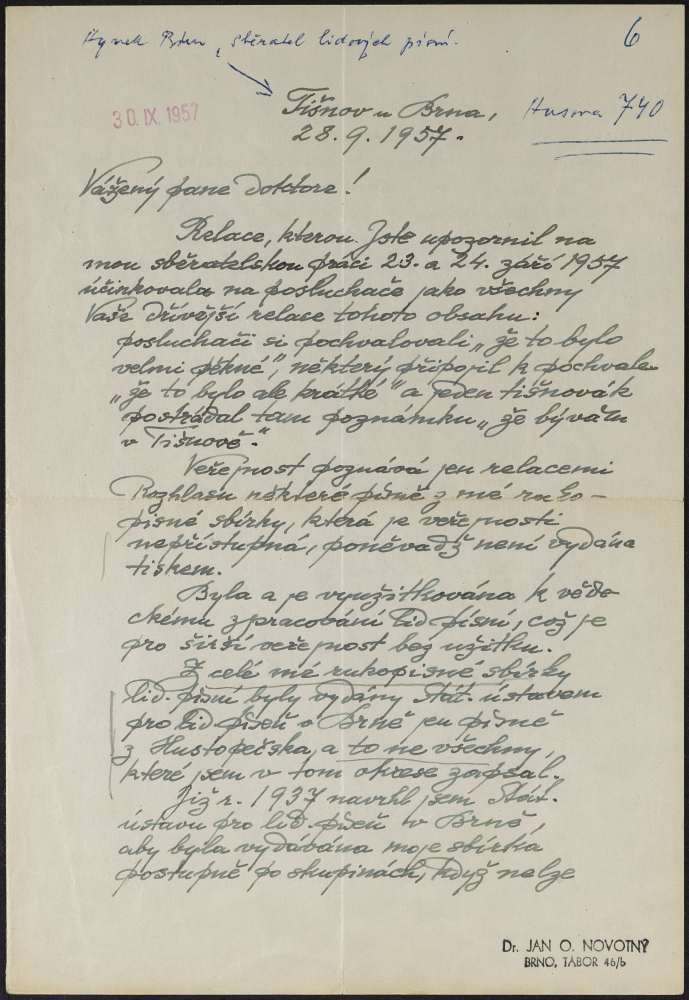 Hynek Bím, sběratel lidových písní.
6
30. IX. 1957
Tišnov u Brna,
Husova 740
28. 9. 1957.
Vážený pane doktore!
Relace, kterou Jste upozornil na
mou sběratelskou práci 23. a 24. září 1957
účinkovala na posluchače jako všechny
Vaše dřívější relace tohoto obsahu:
posluchači si pochvalovali „že to bylo
velmi pěkné", některý připojil k pochvale
„že to bylo ale krátké" a jeden tišnovák
postrádal tam poznámku „že bývám
v Tišnově."
Veřejnost poznává jen relacemi
Rozhlasu některé písně z mé ruko-
pisné sbírky, která je veřejnosti
nepřístupná, poněvadž není vydána
tiskem.
Byla a je využitkována k věde-
ckému zpracování lid písní, což je
pro širší veřejnost bez užitku.
Z celé mé rukopisné sbírky
lid. písní byly vydány Stát. ústavem
pro lid píseň v Brně jen písně
z Hustopečska, a to ne všechny,
které jsem v tom okrese zapsal.
Již r. 1937 navrhl jsem Stát.
ústavu pro lid. píseň v Brně,
aby byla vydávána moje sbírka
postupně po skupinách, když nelze
Dr. JAN O. NOVOTNÝ
BRNO, TÁBOR 46/b